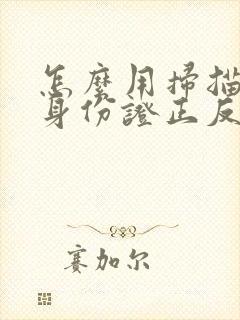 怎麼用掃描
身份證正反
賽加尔